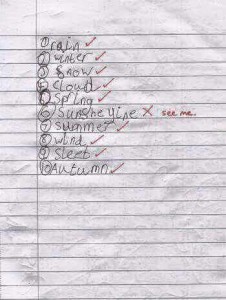 1 rain ✓
2 winter ✓
3 Snow ✓
4 Cloud ✓
5 Spring ✓
6 Sunsheyine ✗ see me.
7 Summer ✓
8 wind ✓
9 Sleet ✓
10 Autumn ✓